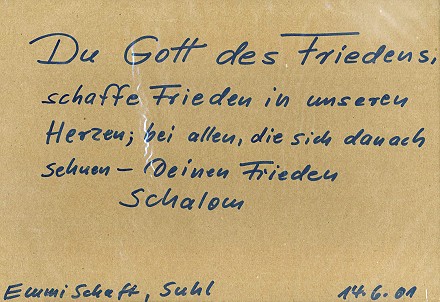 Du Gott des Friedens,
schaffe Frieden in unseren
Herzen; bei allen, die sich danach
sehnen – Deinen Frieden
Schalom
Emmi Schaft, Suhl 14.6.01